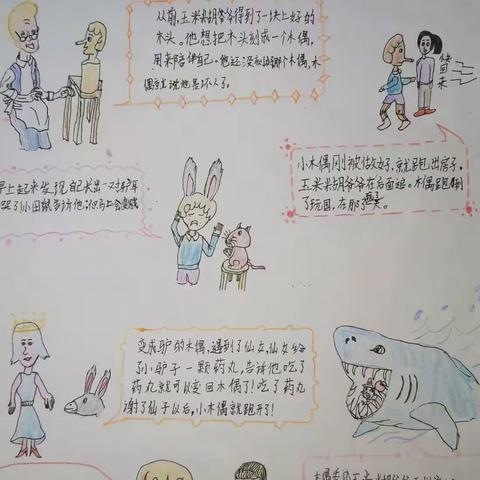 从前,玉米胡爷爷得到了一块上好的
木头。他想把木头刻成一个木偶,
用来陪伴自己。他还没
偶就说他是坏人了。
快
回
来
小木偶刚被做好,就跑出房子,
玉米胡爷爷在后面追。木偶跑到
了玩国,在那
早上起来发现,自己长出一双驴耳
哭了小田鼠告诉他,他马上会变成
变成驴的木偶,遇到了仙女,仙女给
了小驴子一颗药丸,告诉他,吃了
药丸就可以变回木偶了!吃了药丸
谢了仙子以后,小木偶就跑开了!